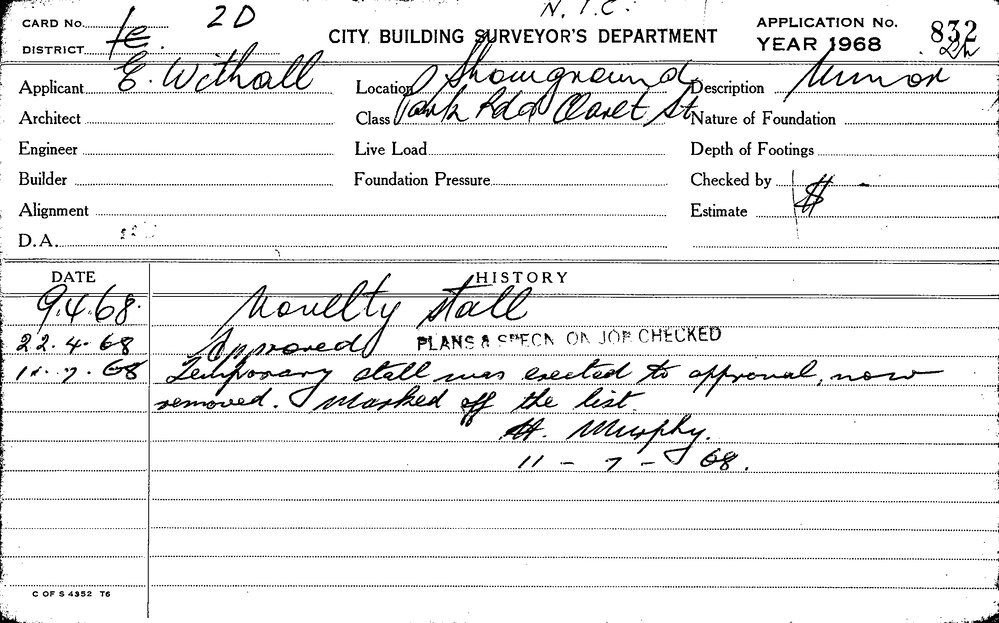 N.T.C.
CARD No. 2D
DISTRICT
CITY BUILDING SURVEYOR'S DEPARTMENT
APPLICATION No. 832
YEAR 1968
Applicant E. Withall
Location Showground
Description Minor
Architect
Class Park Rd & St
Nature of Foundation
Engineer
Live Load
Depth of Footings
Builder
Foundation Pressure
Checked by
Alignment
Estimate
D.A.
DATE HISTORY
9.4.68. Novelty stall
22.4.68 Approved PLANS & SPECN ON JOB CHECKED
11.7.68 Temporary stall was erected to approval, now
removed. Marked off the list.
H. Murphy.
11-7-68.
C OF S 4352 T6